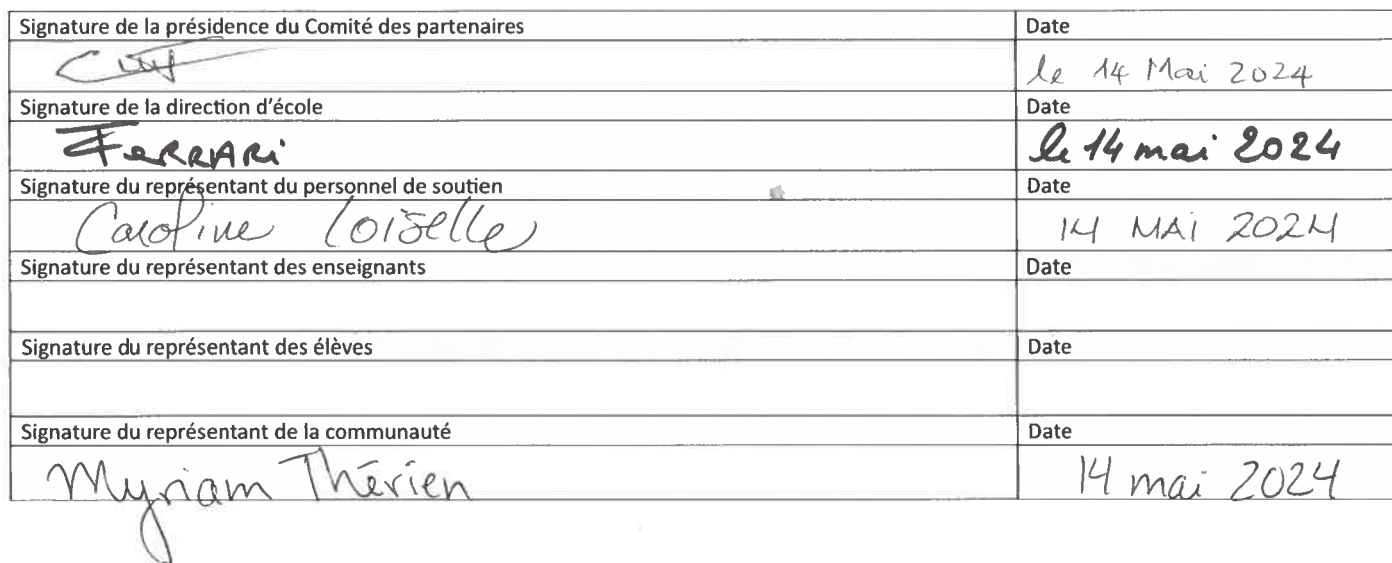 Signature de la présidence du Comité des partenaires Date
le 14 Mai 2024
Signature de la direction d'école Date
FERRARi le 14 mai 2024
Signature du représentant du personnel de soutien Date
Caroline Loiselle 14 MAi 2024
Signature du représentant des enseignants Date
Signature du représentant des élèves Date
Signature du représentant de la communauté Date
Myriam Thérien 14 mai 2024